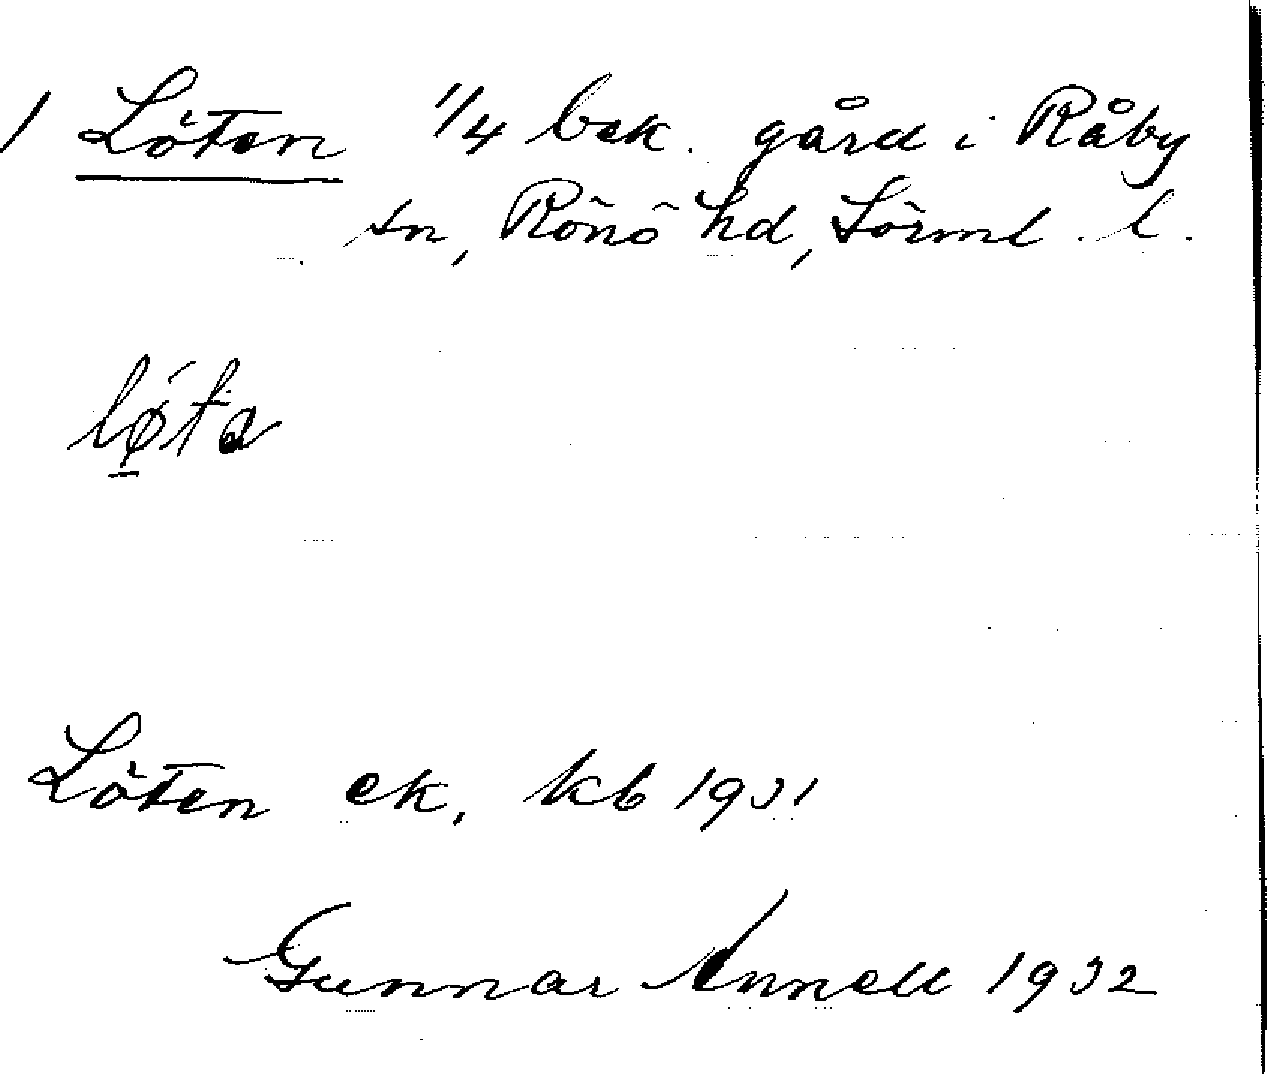 1 Löten 1/4 bek. gård i Råby
sn, Rönö hd, Sörml. l.
Löten ek, kb 1931
Gunnar Annell 1932